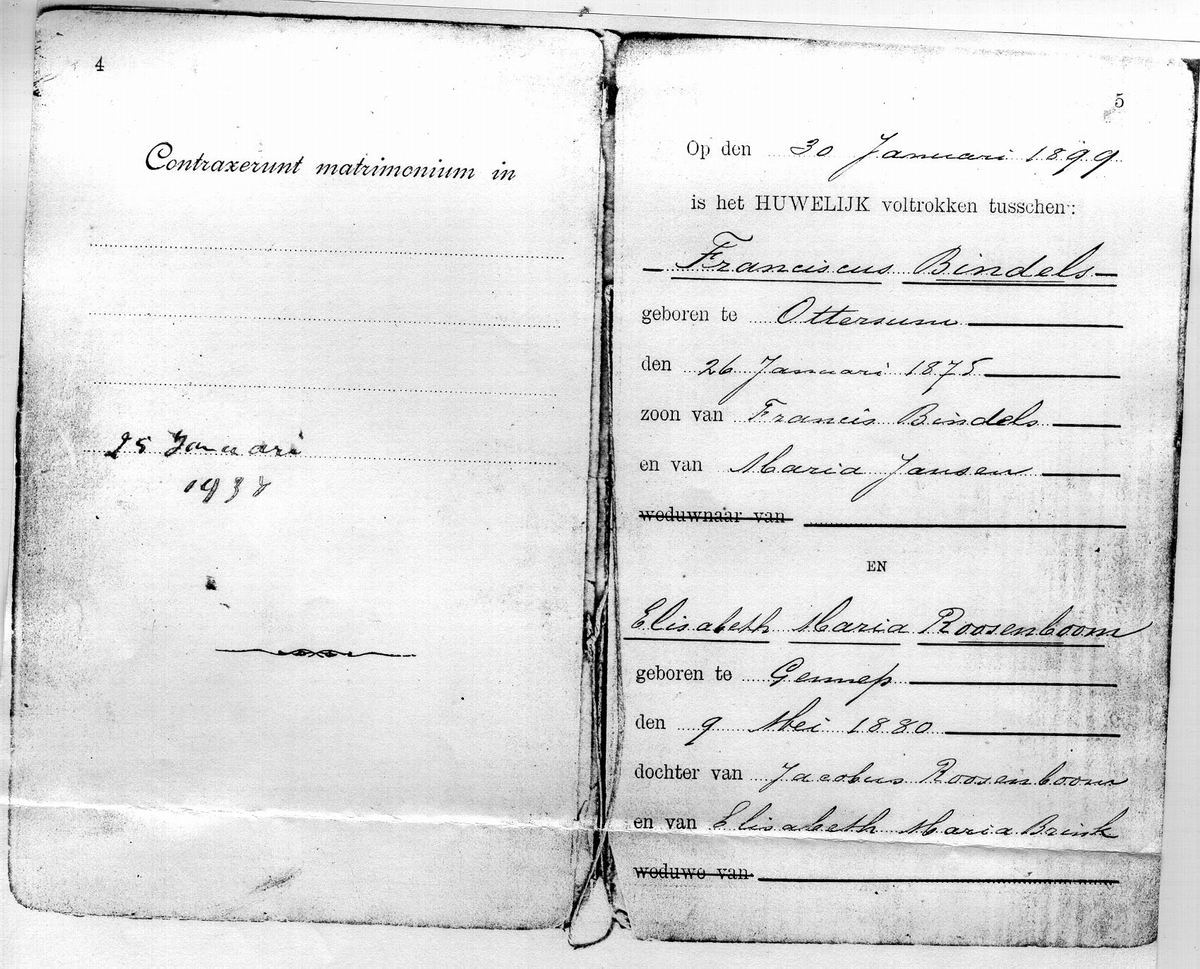 4
Contraxerunt matrimonium in
25 Januari
5
Op den 30 Januari 1899
is het HUWELIJK voltrokken tusschen:
Franciscus Bindels
geboren te Ottersum
den 26 Januari 1875
zoon van Francis Bindels
en van Maria Jansen
weduwnaar van
EN
Elisabeth Maria Roosenboom
geboren te Gennep
den 9 Mei 1880
dochter van Jacobus Roosenboom
en van Elisabeth Maria Brink
weduwe van